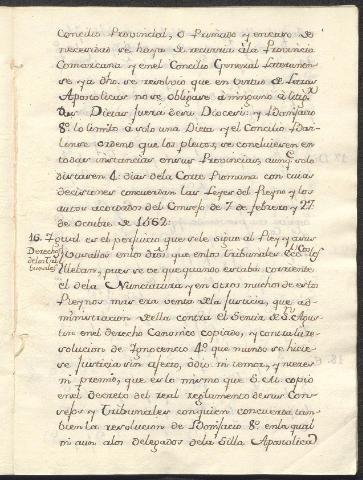 Concilio Provincial, o Primado y en caso de
necesidad se haya de recurrir à la Provincia
Comarcana y en el Concilio General Lateranen
se ya dho. se resolvió que en virtud de Letras
Apostolicas no se obligase à ninguno à litig.r
dos Dietas fuera de su Diocesis: y Bonifacio
8º lo limitó à solo una Dieta y el Concilio Basi-
liense ordenó que los pleitos, se concluiesen en
todas instancias en sus Provincias, aunq.e solo
distasen 4 dias de la Corte Romana con cuias
decisiones concuerdan las Leyes del Reyno y los
autos acordados del Consejo de 7 de febrero y 27
de octubre de 1562.
16. 7 qual es el perjuicio que se le sigue al Rey y a sus
Derechos
de los Tri
bunales
Vasallos en los dros. que en los tribunales Ecc.cos les
llebaban, pues se ve que quando estaba corriente
el de la Nunciatura y en otros muchos de estos
Reynos mas era venta de la Justicia, que ad-
ministracion de ella contra el sentir de S. Agus-
tin en el derecho Canonico copiado, y contra la re-
solucion de Ignocencio 4º que mandó se hicie-
se Justicia sin afecto, odio ni temor, y menos
ni premio, que es lo mismo que S. M. copio
en el decreto del real reglamento de sus Con-
sejos y Tribunales con quien concuerda tam-
bien la resolucion de Bonifacio 8º en la qual
ni aun a los delegados de la Silla Apostolica